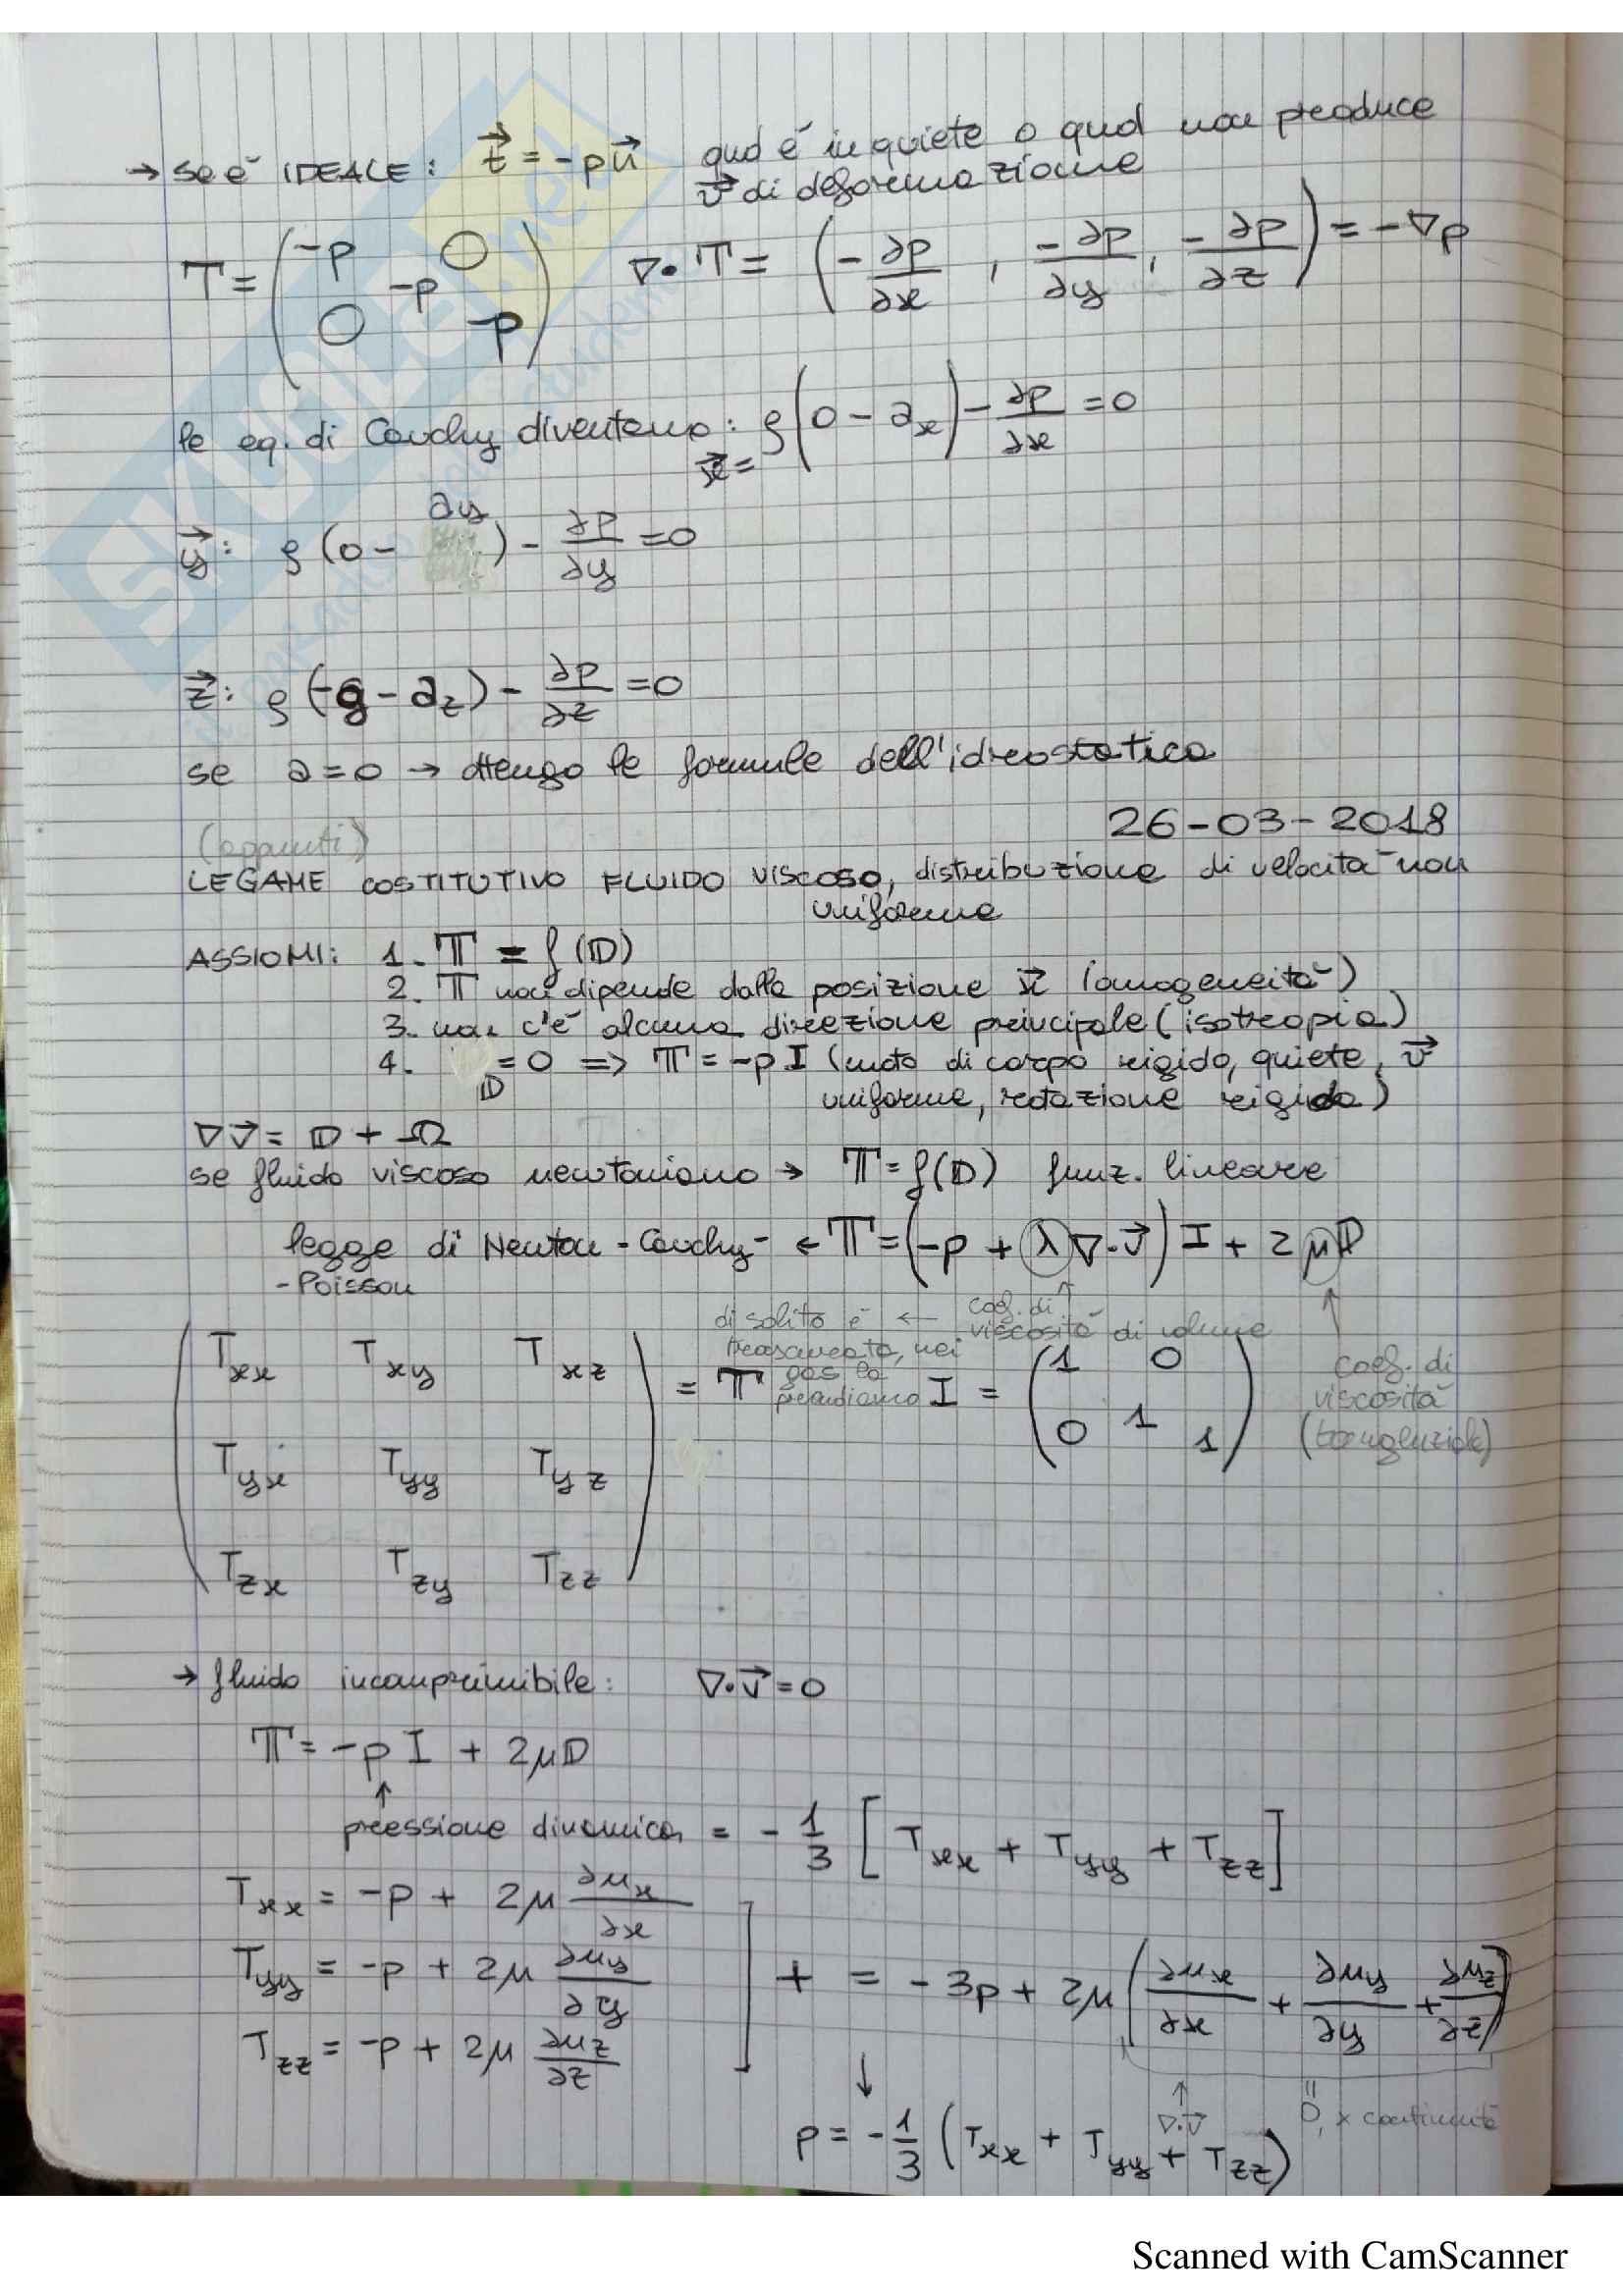 → se è IDEALE: t⃗ = -p n⃗ qnd è in quiete o qnd non produce
v⃗ di deformazione
T = ( -p 0 -p 0 -p ) ∇·T = ( -∂p/∂x , -∂p/∂y , -∂p/∂z ) = -∇p
le eq. di Cauchy diventano: ρ(0 - a_x) - ∂p/∂x = 0
x⃗ =
y⃗: ρ(0 - a_y) - ∂p/∂y = 0
z⃗: ρ(-g - a_z) - ∂p/∂z = 0
se a = 0 → ottengo le formule dell'idrostatica
26-03-2018
(appunti)
LEGAME COSTITUTIVO FLUIDO VISCOSO, distribuzione di velocità non
uniforme
ASSIOMI: 1. 𝕋 = f(𝔻)
2. 𝕋 non dipende dalla posizione x⃗ (omogeneità)
3. non c'è alcuna direzione principale (isotropia)
4. 𝔻 = 0 => 𝕋 = -p I (moto di corpo rigido, quiete, v⃗
uniforme, rotazione rigida)
∇v⃗ = 𝔻 + Ω
se fluido viscoso newtoniano → 𝕋 = f(𝔻) funz. lineare
legge di Newton-Cauchy- ← 𝕋 = (-p + λ∇·v⃗) I + 2μ𝔻
-Poisson
di solito è ← coef. di viscosità di volume
trascurato, nei gas lo prendiamo
coef. di viscosità (tangenziale)
( T_xx T_xy T_xz
T_yx T_yy T_yz
T_zx T_zy T_zz ) = 𝕋 I = ( 1 0 0 1 1 )
→ fluido incomprimibile: ∇·v⃗ = 0
𝕋 = -p I + 2μ𝔻
↑
pressione dinamica = -1/3 [T_xx + T_yy + T_zz]
T_xx = -p + 2μ ∂u_x/∂x
T_yy = -p + 2μ ∂u_y/∂y ] + = -3p + 2μ (∂u_x/∂x + ∂u_y/∂y + ∂u_z/∂z)
T_zz = -p + 2μ ∂u_z/∂z
↓ ↑ ∇·v⃗ = 0, x continuità
p = -1/3 (T_xx + T_yy + T_zz)
SKUOLA.net
Scanned with CamScanner